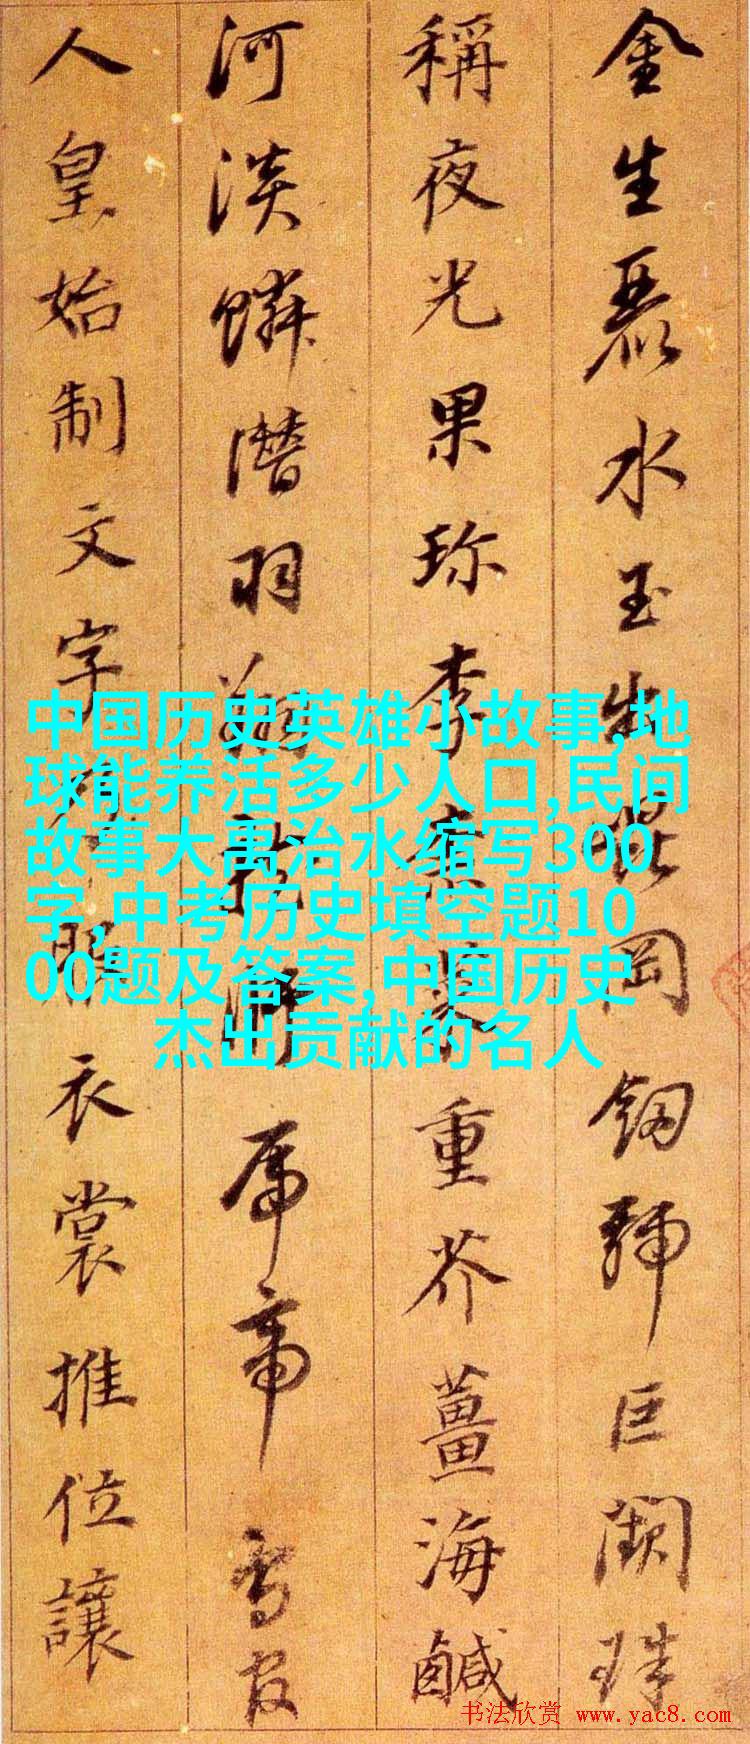 金生麗水玉出崑岡劍號巨闕珠
稱夜光果珍李柰菜重芥薑海鹹
河淡鱗潛羽翔龍師帝鳥官
人皇始制文字乃服衣裳推位讓
中国历史英雄小故事,地
球能养活多少人口,民间
故事大禹治水缩写300
字,中考历史填空题10
00题及答案,中国历史
杰出贡献的名人
书法欣赏 www.yac8.com